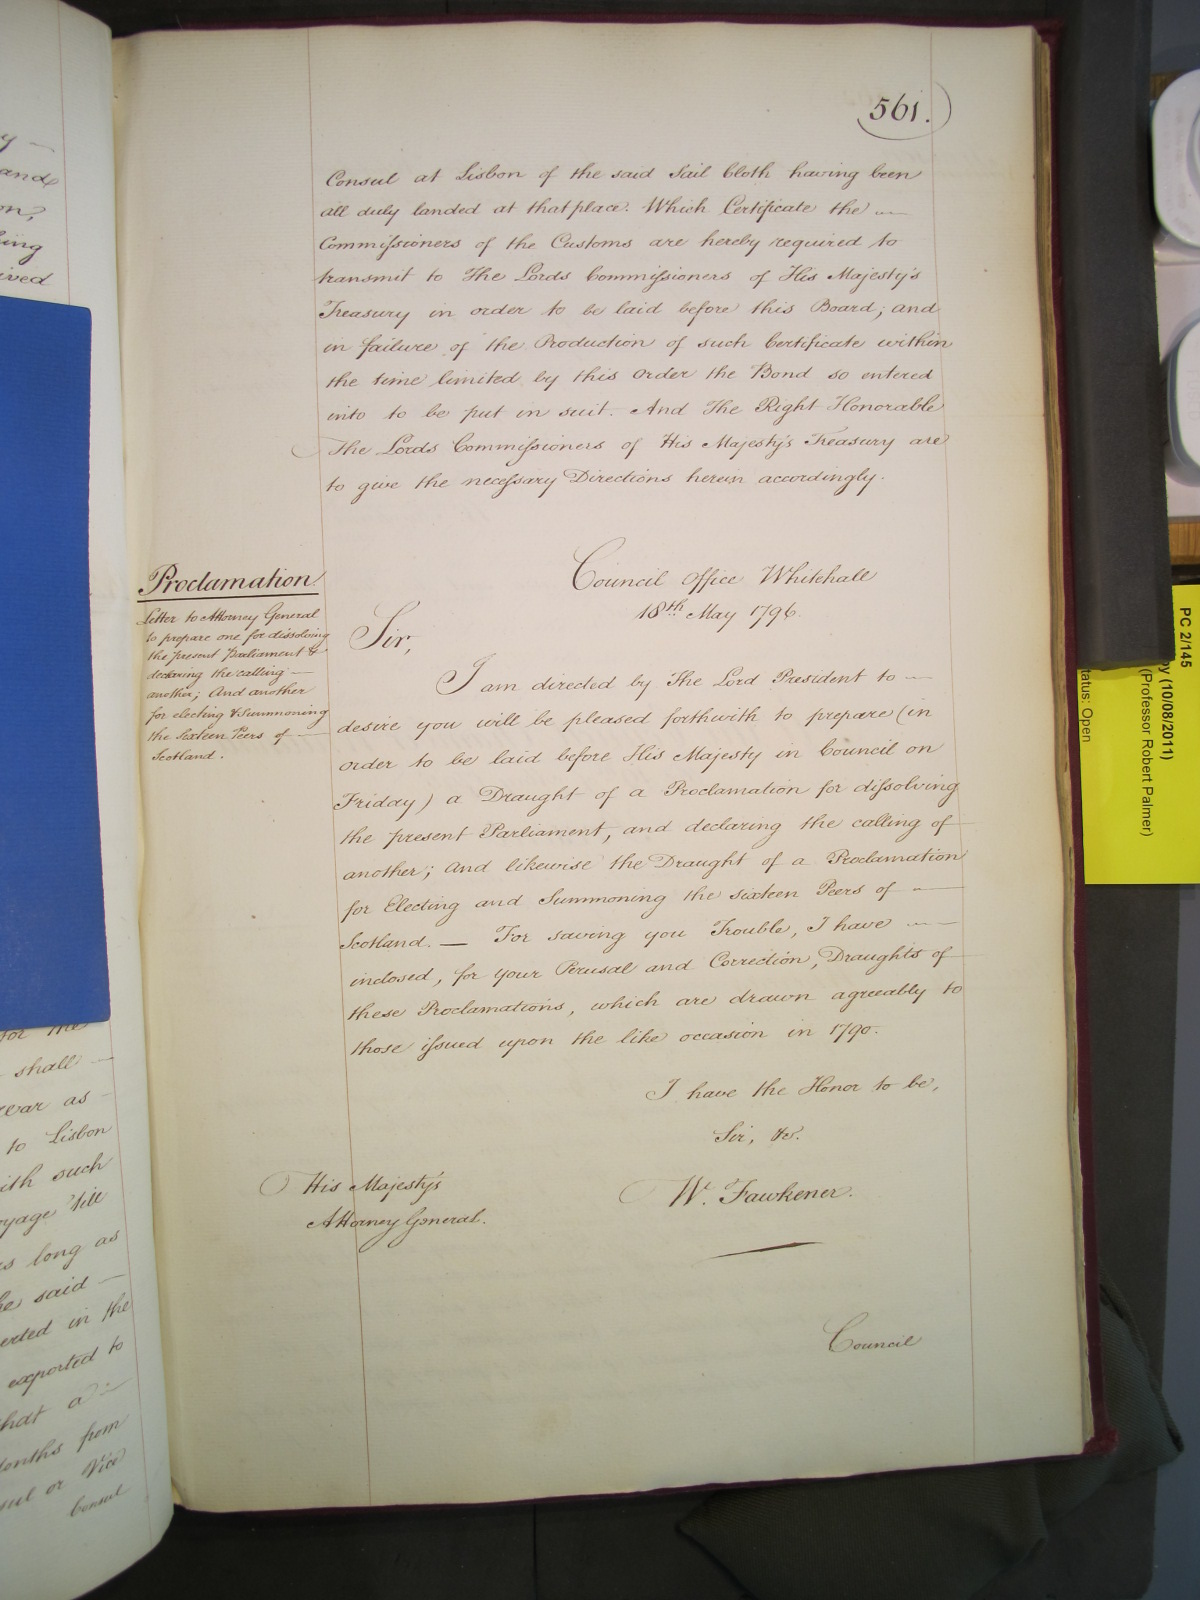 561.
Consul at Lisbon of the said Sail Cloth having been
all duly landed at that place. Which Certificate the
Commissioners of the Customs are hereby required to
transmit to The Lords Commissioners of His Majesty's
Treasury in order to be laid before this Board; and
in failure of the Production of such Certificate within
the time limited by this Order the Bond so entered
into to be put in suit. And The Right Honorable
The Lords Commissioners of His Majesty's Treasury are
to give the necessary Directions herein accordingly.
Proclamation
Letter to Attorney General
to prepare one for dissolving
the present Parliament &
declaring the calling —
another; And another
for electing & Summoning
the Sixteen Peers of —
Scotland.
Council Office Whitehall
18th May 1796.
Sir,
I am directed by The Lord President to —
desire you will be pleased forthwith to prepare (in
order to be laid before His Majesty in Council on
Friday) a Draught of a Proclamation for dissolving
the present Parliament, and declaring the calling of
another; And likewise the Draught of a Proclamation
for Electing and Summoning the sixteen Peers of —
Scotland. — For saving you Trouble, I have —
inclosed, for your Perusal and Correction, Draughts of
these Proclamations, which are drawn agreeably to
those issued upon the like occasion in 1790.
I have the Honor to be,
Sir, &c.
His Majesty's
Attorney General.
W. Fawkener.
Council
and
ing
ived
for the
shall —
as -
to Lisbon
such
till
long as
said —
in the
exported to
that a
from
or Vice
Consul
PC 2/145
(10/08/2011)
(Professor Robert Palmer)
tatus: Open